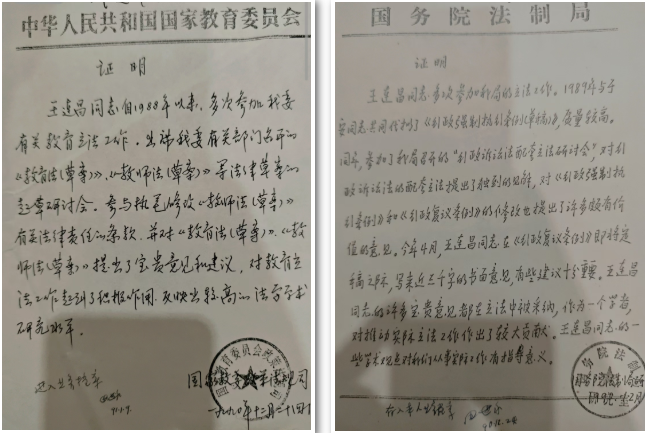 中华人民共和国国家教育委员会
证明
王连昌同志自1988年以来,多次参加我委
有关教育立法工作。出席我委有关部门召开的
《教育法(草案)》、《教师法(草案)》等法律草案的
起草研讨会。参与执笔修改《教师法(草案)》
有关法律责任的条款,并对《教育法(草案)》、《教
师法(草案)》提出了宝贵意见和建议,对教育立
法工作起到了积极作用,反映出较高的法学学术
研究水平。
国家教委政策法规司
一九九〇年十二月二十四日
国务院法制局
证明
王连昌同志多次参加我局的立法工作。1989年与于
安同志共同代拟了《行政强制执行条例(草稿)》,质量较高。
同年,参加了我局召开的“行政诉讼法配套立法研讨会”,对行
政诉讼法的配套立法提出了独到的见解,对《行政强制执
行条例》和《行政复议条例》的修改也提出了许多颇有价
值的意见。今年4月,王连昌同志在《行政复议条例》即将定
稿之际,写来近三千字的书面意见,有些建议十分重要。王连昌
同志的许多宝贵意见都在立法中被采纳,作为一个学者,
对推动实际立法工作作出了较大贡献。王连昌同志的一
些学术观点对我们从事实际工作有指导意义。
国务院法制局